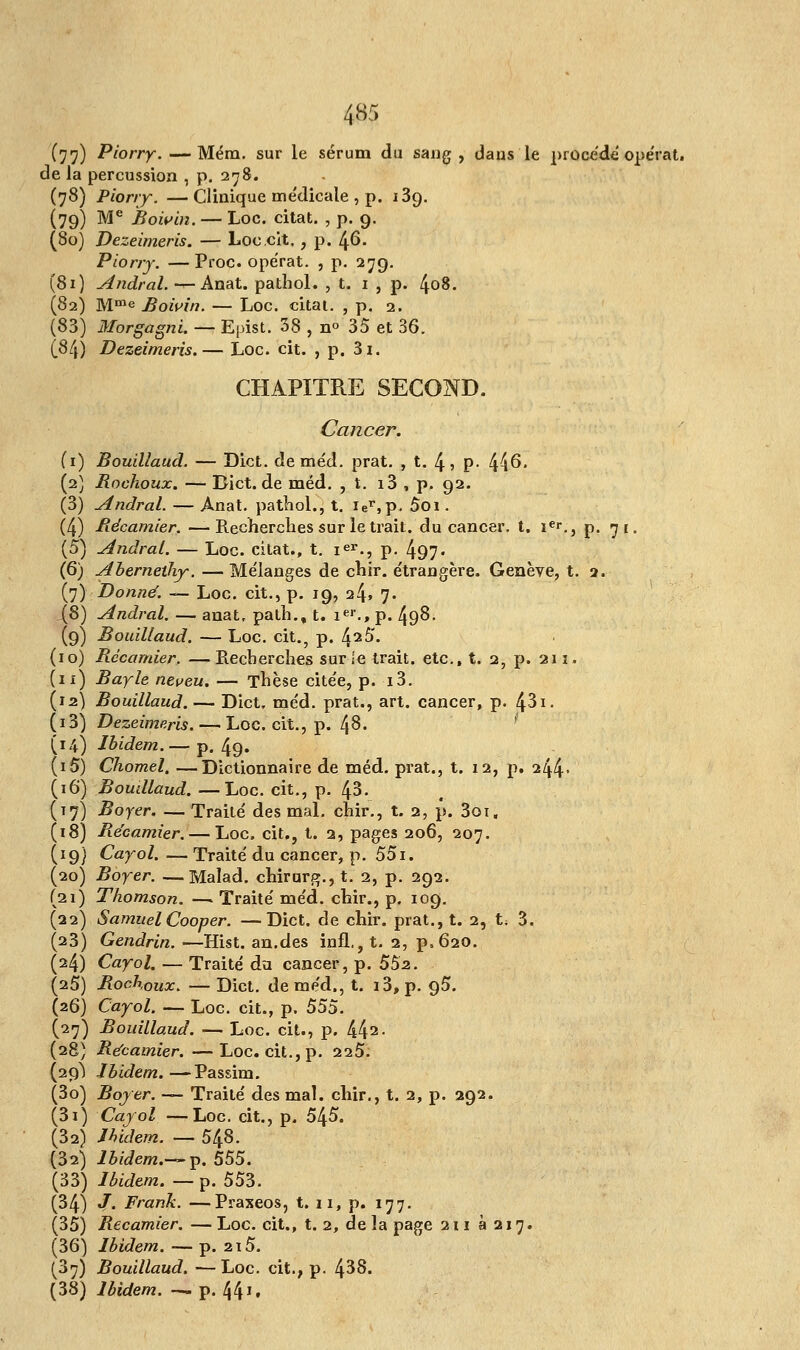 485
(77) Piorry. — Mém. sur le sérum du sang , dans le procédé opérat.
de la percussion , p. 278.
(78) Piorry. — Clinique médicale , p. 139.
(79) Me Boivin. — Loc. citat. , p. 9.
(80) Dezeimeris. — Loc cit. , p. 46.
Piorry. — Proc. opérat. , p. 279.
(81) Andral. — Anat. pathol. , t. 1 , p. 408.
(82) Mme Boivin. — Loc. citat. , p. 2.
(83) Morgagni. — Epist. 38 , no 35 et 36.
(84) Dezeimeris. — Loc. cit. , p. 31.
CHAPITRE SECOND.
Cancer.
(1) Bouillaud. — Dict. de méd. prat. , t. 4 , p. 446.
(2) Rochoux. — Dict. de méd. , t. 13 , p. 92.
(3) Andral. — Anat. pathol., t. 1er, p. 501.
(4) Récamier. — Recherches sur le trait. du cancer. t. 1er., p. 71.
(5) Andral. — Loc. citat., t. 1er., p. 497.
(6) Abernethy. — Mélanges de chir. étrangère. Genève, t. 2.
(7) Donné. — Loc. cit., p. 19, 24, 7.
(8) Andral. — anat. path., t. 1er., p. 498.
(9) Bouillaud. — Loc. cit., p. 425.
(10) Récamier. — Recherches sur le trait. etc., t. 2, p. 211.
(11) Bayle neveu. — Thèse citée, p. 13.
(12) Bouillaud. — Dict. méd. prat., art. cancer, p. 431.
(13) Dezeimeris. — Loc. cit., p. 48.
(14) Ibidem. — p. 49.
(15) Chomel. — Dictionnaire de méd. prat., t. 12, p. 244.
(16) Bouillaud. — Loc. cit., p. 43.
(17) Boyer. — Traité des mal. chir., t. 2, p. 301.
(18) Récamier. — Loc. cit., t. 2, pages 206, 207.
(19) Cayol. — Traité du cancer, p. 551.
(20) Boyer. — Malad. chirurg., t. 2, p. 292.
(21) Thomson. — Traité méd. chir., p. 109.
(22) Samuel Cooper. — Dict. de chir. prat., t. 2, t. 3.
(23) Gendrin. — Hist. an. des infl., t. 2, p. 620.
(24) Cayol. — Traité du cancer, p. 552.
(25) Rochoux. — Dict. de méd., t. 13, p. 95.
(26) Cayol. — Loc. cit., p. 555.
(27) Bouillaud. — Loc. cit., p. 442.
(28) Récamier. — Loc. cit., p. 225.
(29) Ibidem. — Passim.
(30) Boyer. — Traité des mal. chir., t. 2, p. 292.
(31) Cayol — Loc. cit., p. 545.
(32) Ibidem. — 548.
(32) Ibidem. — p. 555.
(33) Ibidem. — p. 553.
(34) J. Frank. — Praxeos, t. 11, p. 177.
(35) Recamier. — Loc. cit., t. 2, de la page 211 à 217.
(36) Ibidem. — p. 215.
(37) Bouillaud. — Loc. cit., p. 438.
(38) Ibidem. — p. 441.